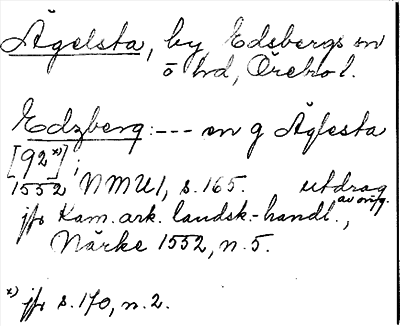 Ägelsta, by, Edsbergs sn
o hd, Örebro l.
Edzberg: --- en g Äglesta
[92ˣ⁾];
1552 NMU 1, s. 165. utdrag
av orig.
jfr Kam. ark. landsk.-handl.,
Närke 1552, n. 5.
x) jfr s. 170, n. 2.